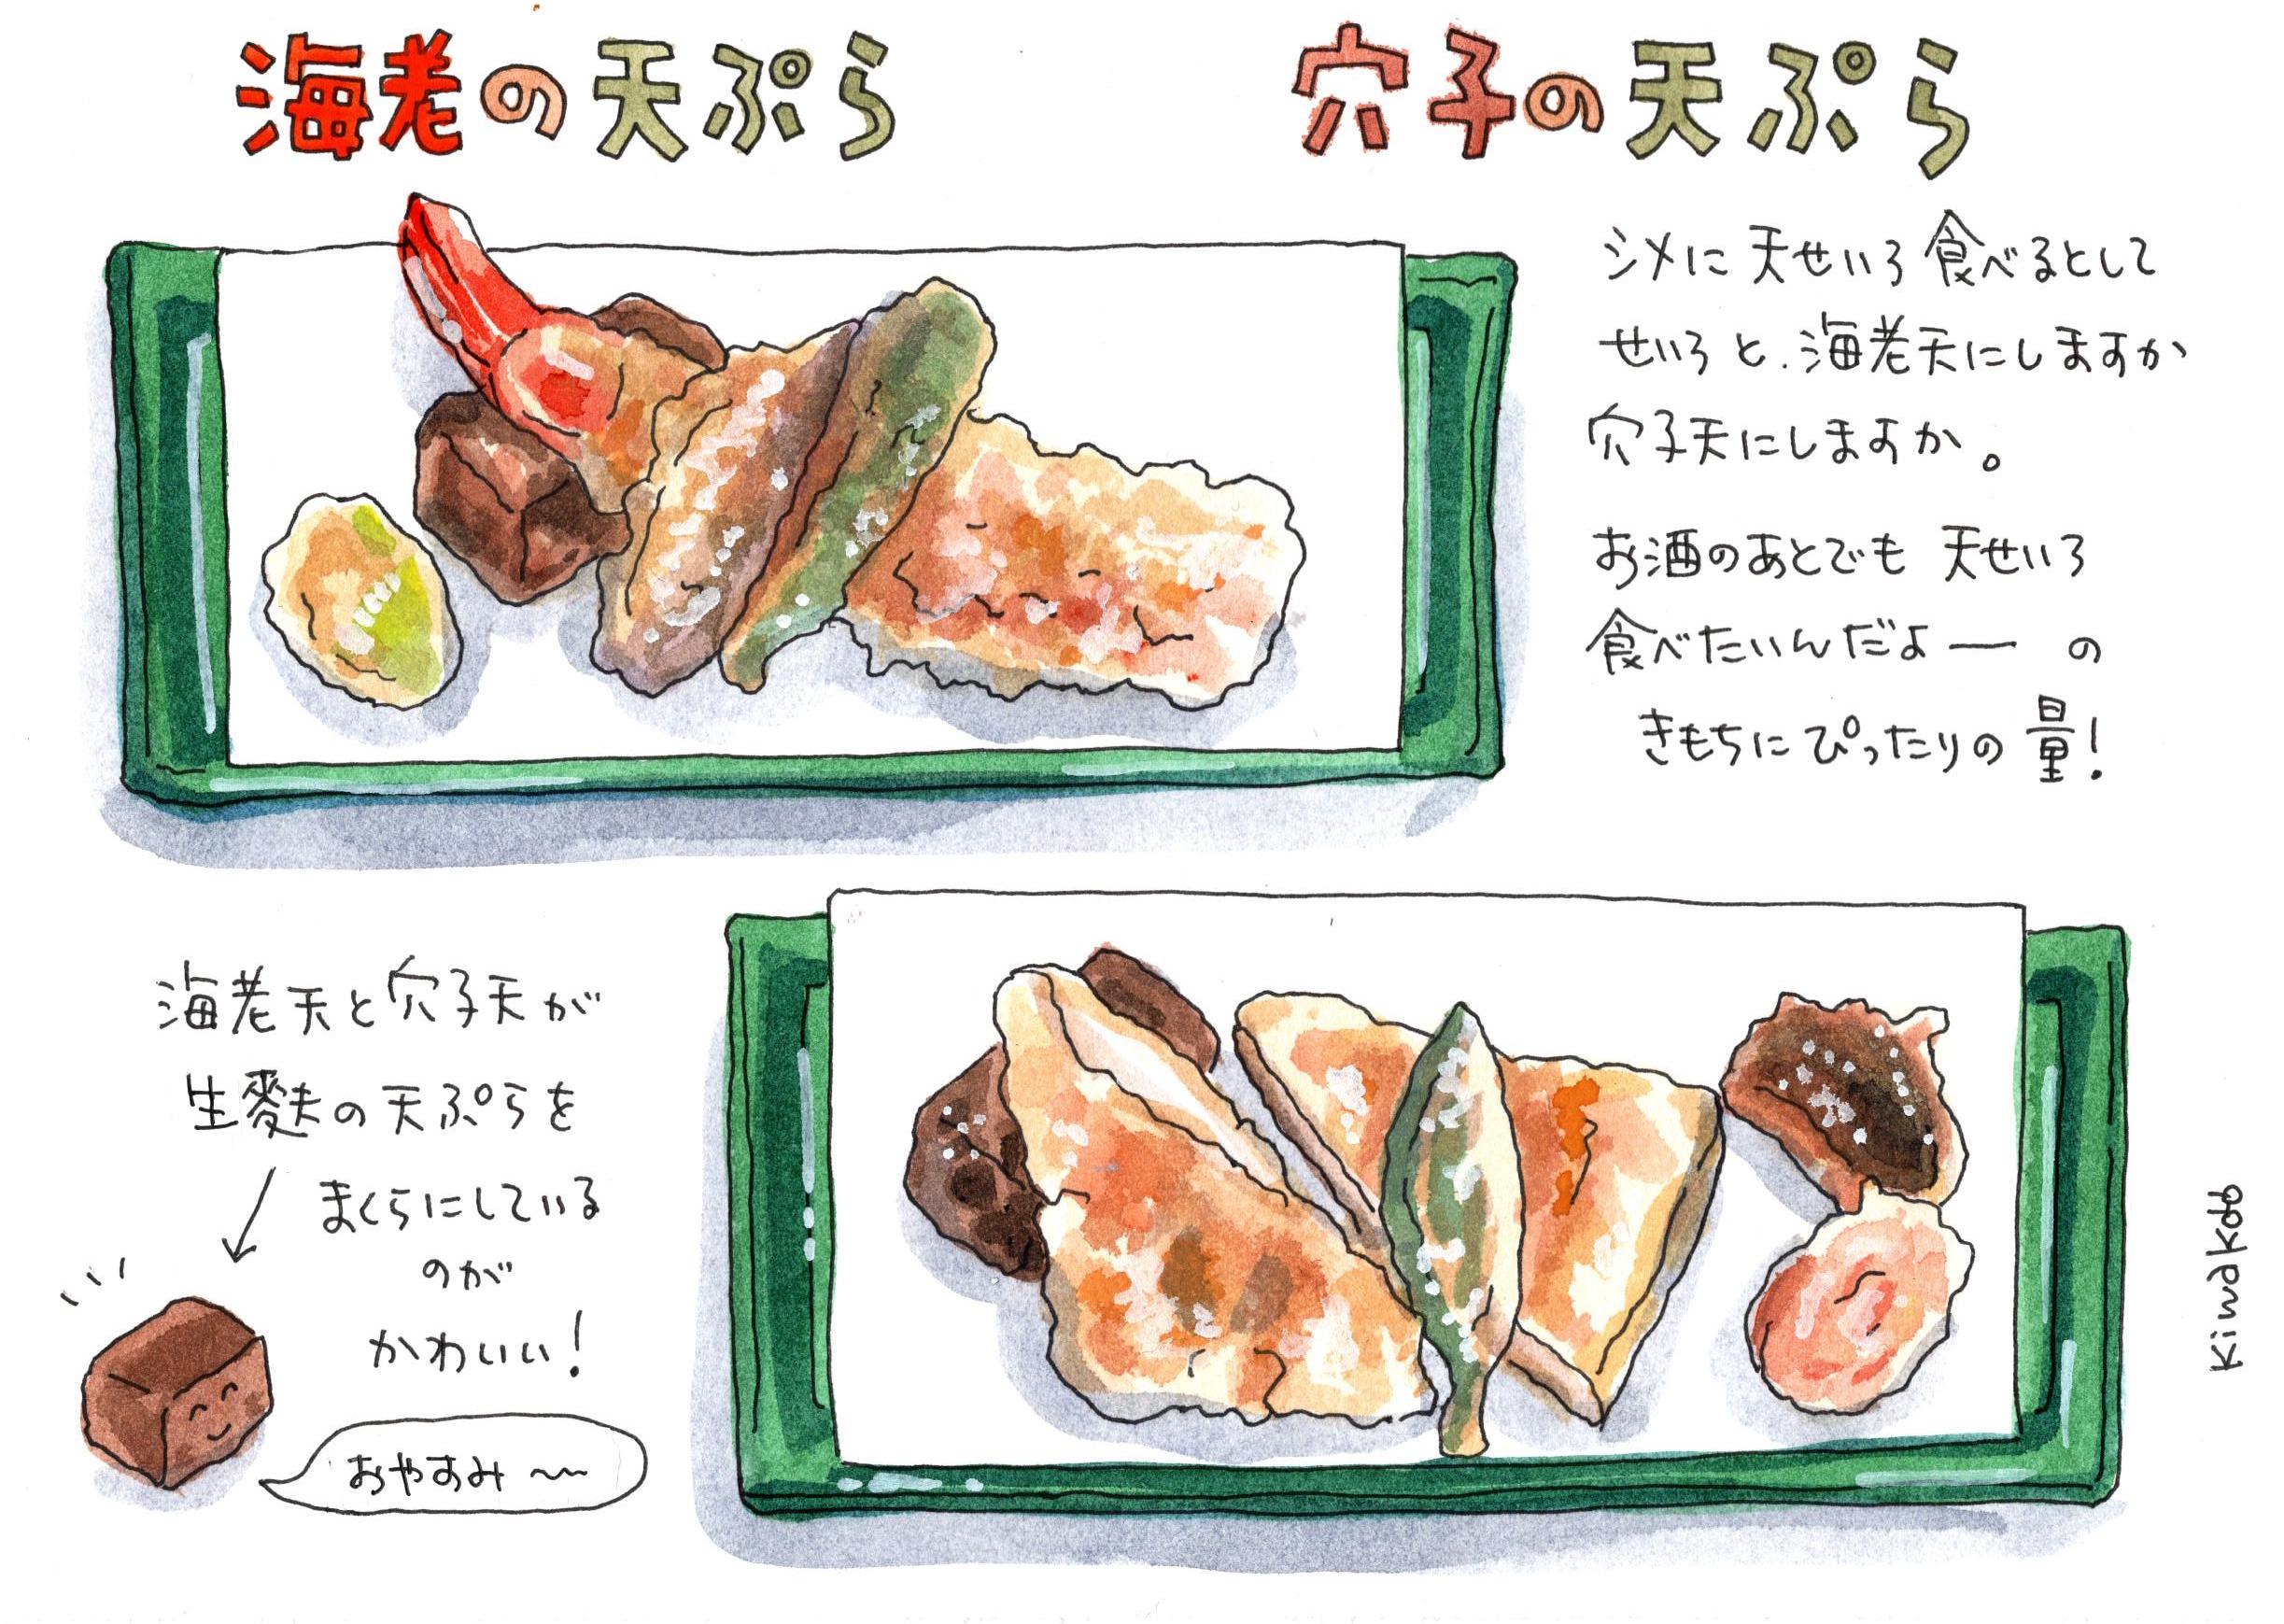 海老の天ぷら
穴子の天ぷら
シメに天せいろ食べるとして
せいろと、海老天にしますか
穴子天にしますか。
お酒のあとでも 天せいろ
食べたいんだよー の
きもちにぴったりの量!
海老天と穴子天が
生麩の天ぷらを
まくらにしている
のが
かわいい!
おやすみ〜
Kiwakobo